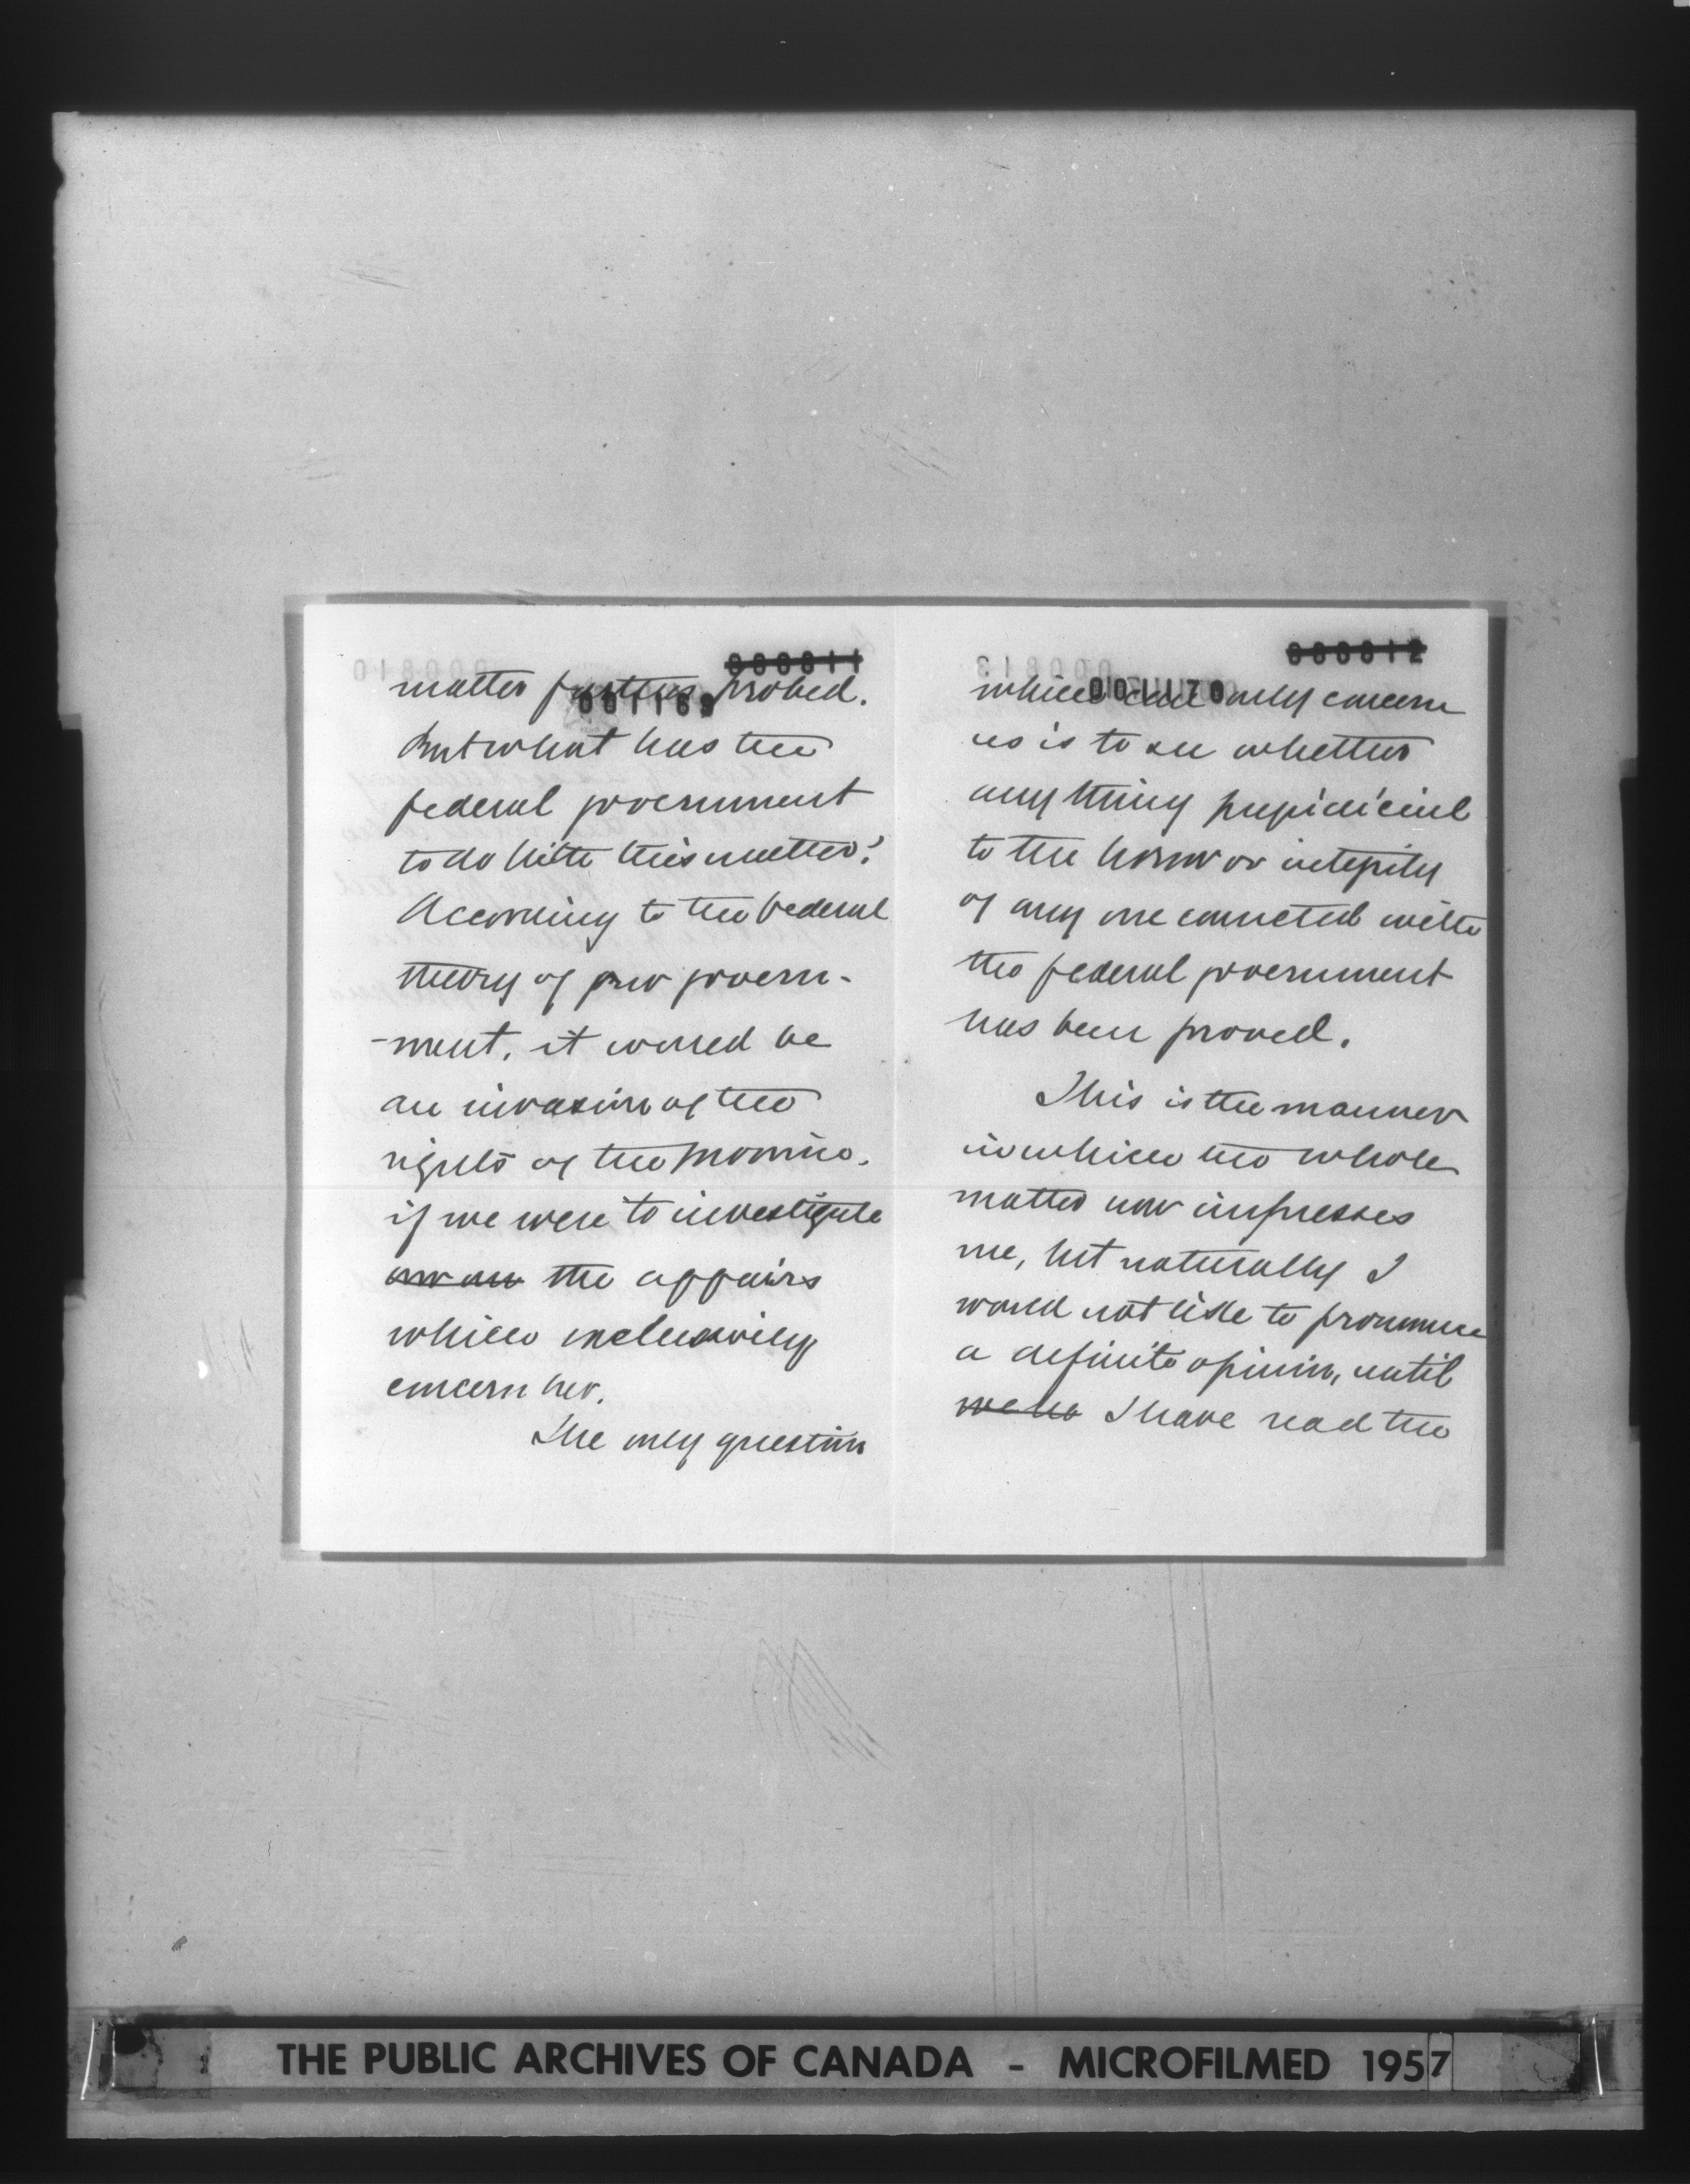 000811
001169
matter further probed.
But what has the
federal government
to do with this matter?
According to the federal
theory of our govern-
-ment, it would be
an invasion of the
rights of the province.
if we were to investigate
the affairs
which exclusively
concern her.
The only question
000812
001170
which can only concern
us is to see whether
any thing prejudicial
to the honor or integrity
of any one connected with
the federal government
has been proved.
This is the manner
in which the whole
matter now impresses
me, but naturally I
would not like to pronounce
a definite opinion, until
we ha I have read the
THE PUBLIC ARCHIVES OF CANADA - MICROFILMED 1957